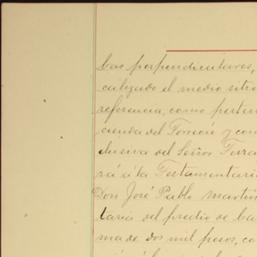 cas perpendiculares,
calizado el medio sitio
referencia, como perten
cienda del Torreón y con
clusiva del Señor Torre
rá á la Testamentaría
Don José Pablo Martín
tario del predio de La
ma de dos mil pesos, co